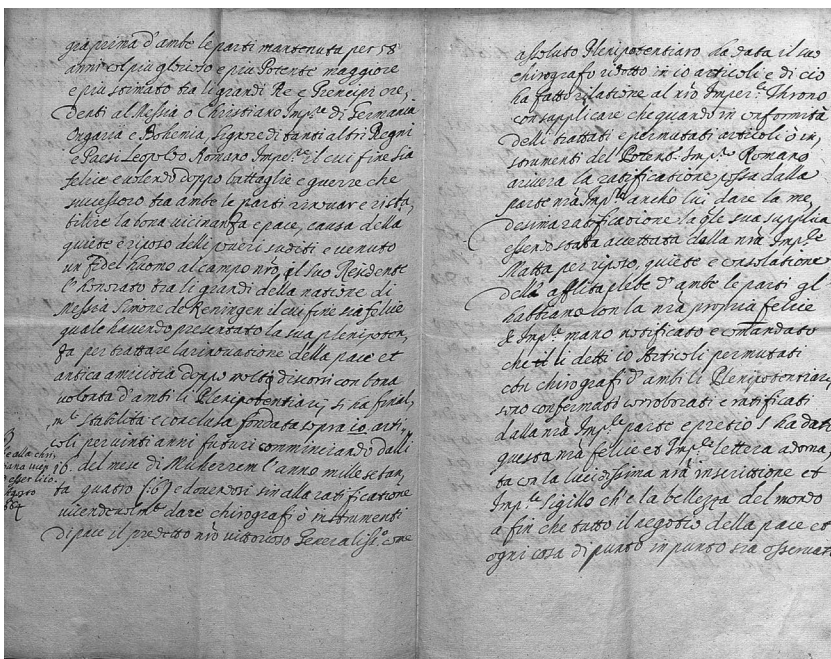 gia prima d'ambe le parti mantenuta per 58
anni col piu glorioso e piu Potente maggiore
e piu stimato tra li grandi Re e Prencipi cre,
denti al Messia o Christiano Imp.re di Germania
Ongaria e Bohemia, signore di tanti altri Regni
e Paesi Leopoldo Romano Imper.re il cui fine sia
felice e volendo doppo battaglie e guerre che
successero tra ambe le parti rinovar e rista,
bilire la bona vicinanza e pace, causa della
quiete e riposo delli poveri suditi e venuto
un fedel huomo al campo nro, il suo Residente
l'honorato tra li grandi della natione di
Messia Simone de Reningen il cui fine sia felice
quale havendo presentato la sua plenipoten,
za per trattare la rinovatione della pace et
antica amicitia doppo molti discorsi con bona
volonta d'ambi li Plenipotentiarij si ha final,
m.te stabilita e conclusa fondata sopra io. arti,
coli per vinti anni futuri comminciando dalli
16. del mese di Muherrem l'anno mille setan,
ta quatro e dovendosi sin alla ratificatione
vicendevolm.te dare chirografi ò instrumenti
di pace il predetto nro vittorioso Generalis.o come
assoluto Plenipotentiaro ha data il suo
chirografo ridotto in io articoli e di ciò
ha fatto relatione al nro Imper.le Throno
con supplicare che quando in conformità
delli trattati e permutati articoli ò in,
strumenti del Potent. Imp.re Romano
arivera la ratificatione possa dalla
parte nra Imp.le anche lui dare la me,
desima ratificatione la qle sua suplica
essendo stata accettata dalla nra Imp.le
Matta per riposo, quiete e consolatione
della aflita plebe d'ambe le parti gl
habbiamo con la nra propria felice
& Imp.le mano notificato e comandato
che li detti io Articoli permutati
con chirografi d'ambi li Plenipotentiarij
sono confermati corroborati e ratificati
dalla nra Imp.le parte e percio s'ha dati
questa nra felice et Imp.le lettera adorna,
ta con la lucidissima nra inscrittione et
Imp.le Sigillo ch'e la bellezza del mondo
a fin che tutto il negotio della pace et
ogni cosa di punto in punto sia osservat